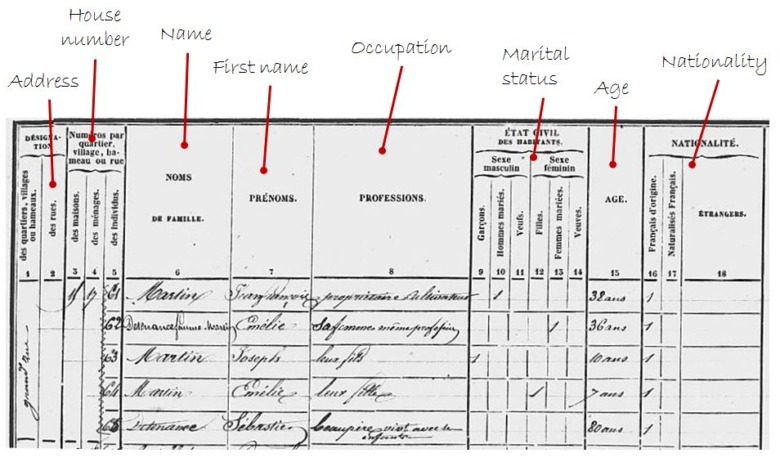 House number
Name
Occupation
Marital status
Nationality
Address
First name
Age
DÉSIGNATION
des quartiers, villages ou hameaux.
des rues.
Numéros par quartier, village, hameau ou rue
des maisons.
des ménages.
des individus.
NOMS
DE FAMILLE.
PRÉNOMS.
PROFESSIONS.
ÉTAT CIVIL
DES HABITANTS.
Sexe masculin
Sexe féminin
Garçons.
Hommes mariés.
Veufs.
Filles.
Femmes mariées.
Veuves.
AGE.
NATIONALITÉ.
Français d'origine.
Naturalisés Français.
ÉTRANGERS.
1 2 3 4 5 6 7 8 9 10 11 12 13 14 15 16 17 18
grand'rue
15 17 61 Martin propriétaire cultivateur 1 38 ans 1
62 Emélie sa femme même profession 1 36 ans 1
63 Martin Joseph leur fils 1 10 ans 1
64 Martin Emélie leur fille 1 7 ans 1
65 Sébastien beaupère vivt avec se
enfants 80 ans 1